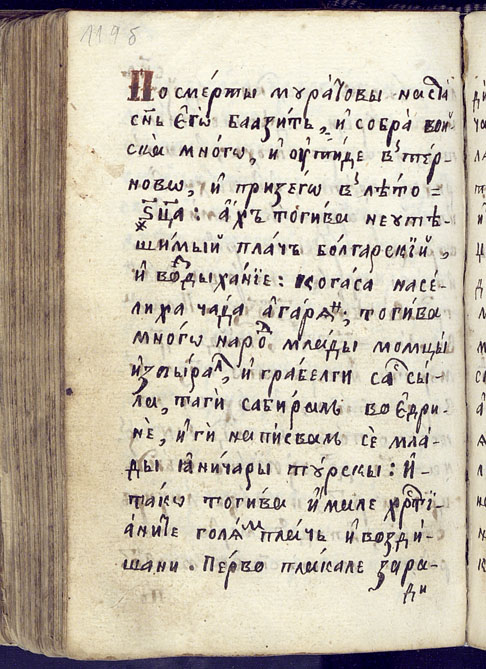 119б
По смерты мꙋратовы наста
сн҃ъ є҆гѡ баазитъ, и҆ собра вой
ска много, и҆ ѹтиде в тер-
новѡ, и҆ призегѡ в лѣто -
҂ѕ҃ѿца: а҆хъ тогива неꙋтѣ-
шимый плачъ болгарскїй,
и҆ воздыханїе: когаса насе-
лиха чада а҆гарѧн; тогива
многѡ народ, млады момцы
и҆зꙿпырал, и҆ грабелги сас сы-
ла, таги сабиралъ во є҆дри-
не, и҆ ги написвалъ се мла-
ды ꙗ҆ничары тꙋрскы: и҆ -
такѡ тогива и҆мале хрⷭтїѧ-
а҆ните голѧм плачъ и҆ возди-
шани. Перво плакале зара-
ди